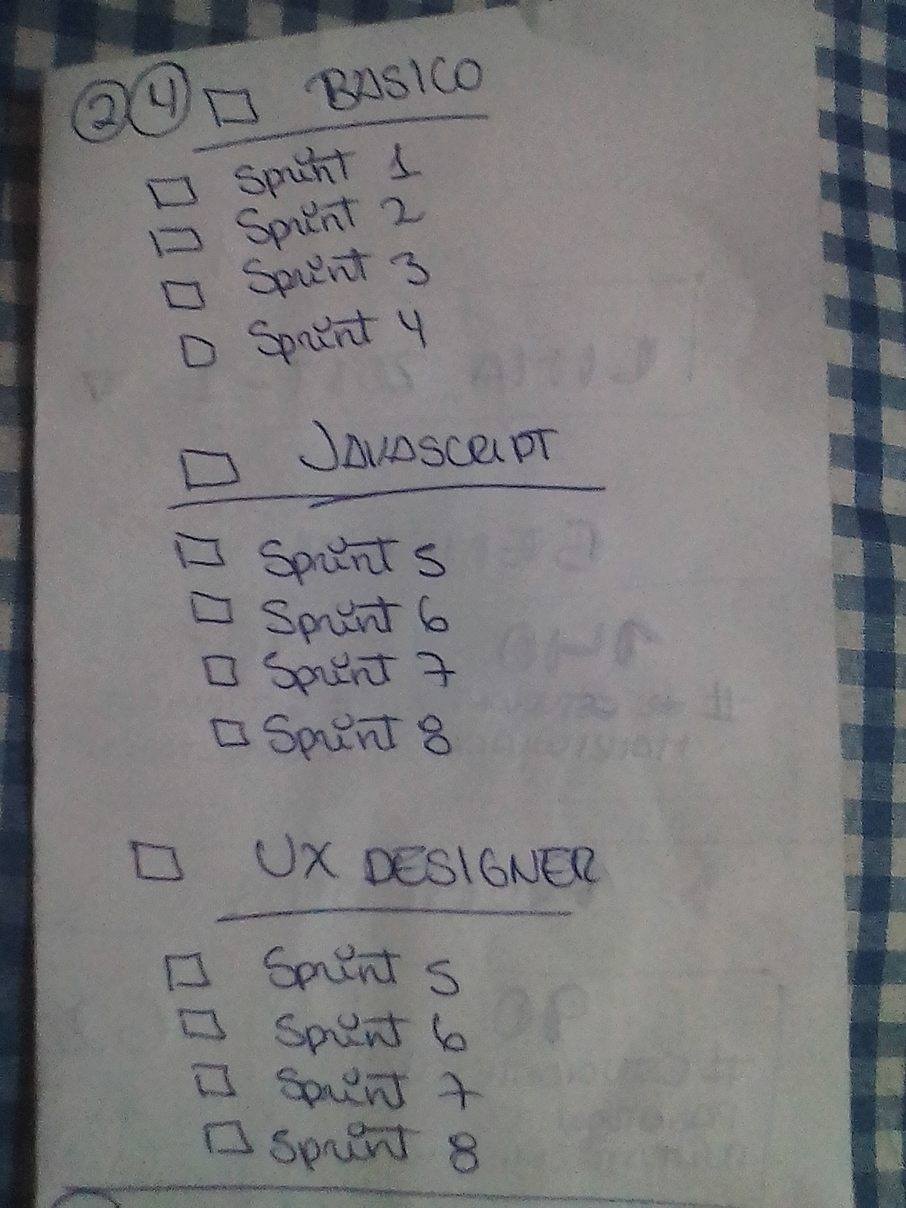 24 □ BASICO
□ Sprint 1
□ Sprint 2
□ Sprint 3
□ Sprint 4
□ JAVASCRIPT
□ Sprint 5
□ Sprint 6
□ Sprint 7
□ Sprint 8
□ UX DESIGNER
□ Sprint 5
□ Sprint 6
□ Sprint 7
□ Sprint 8